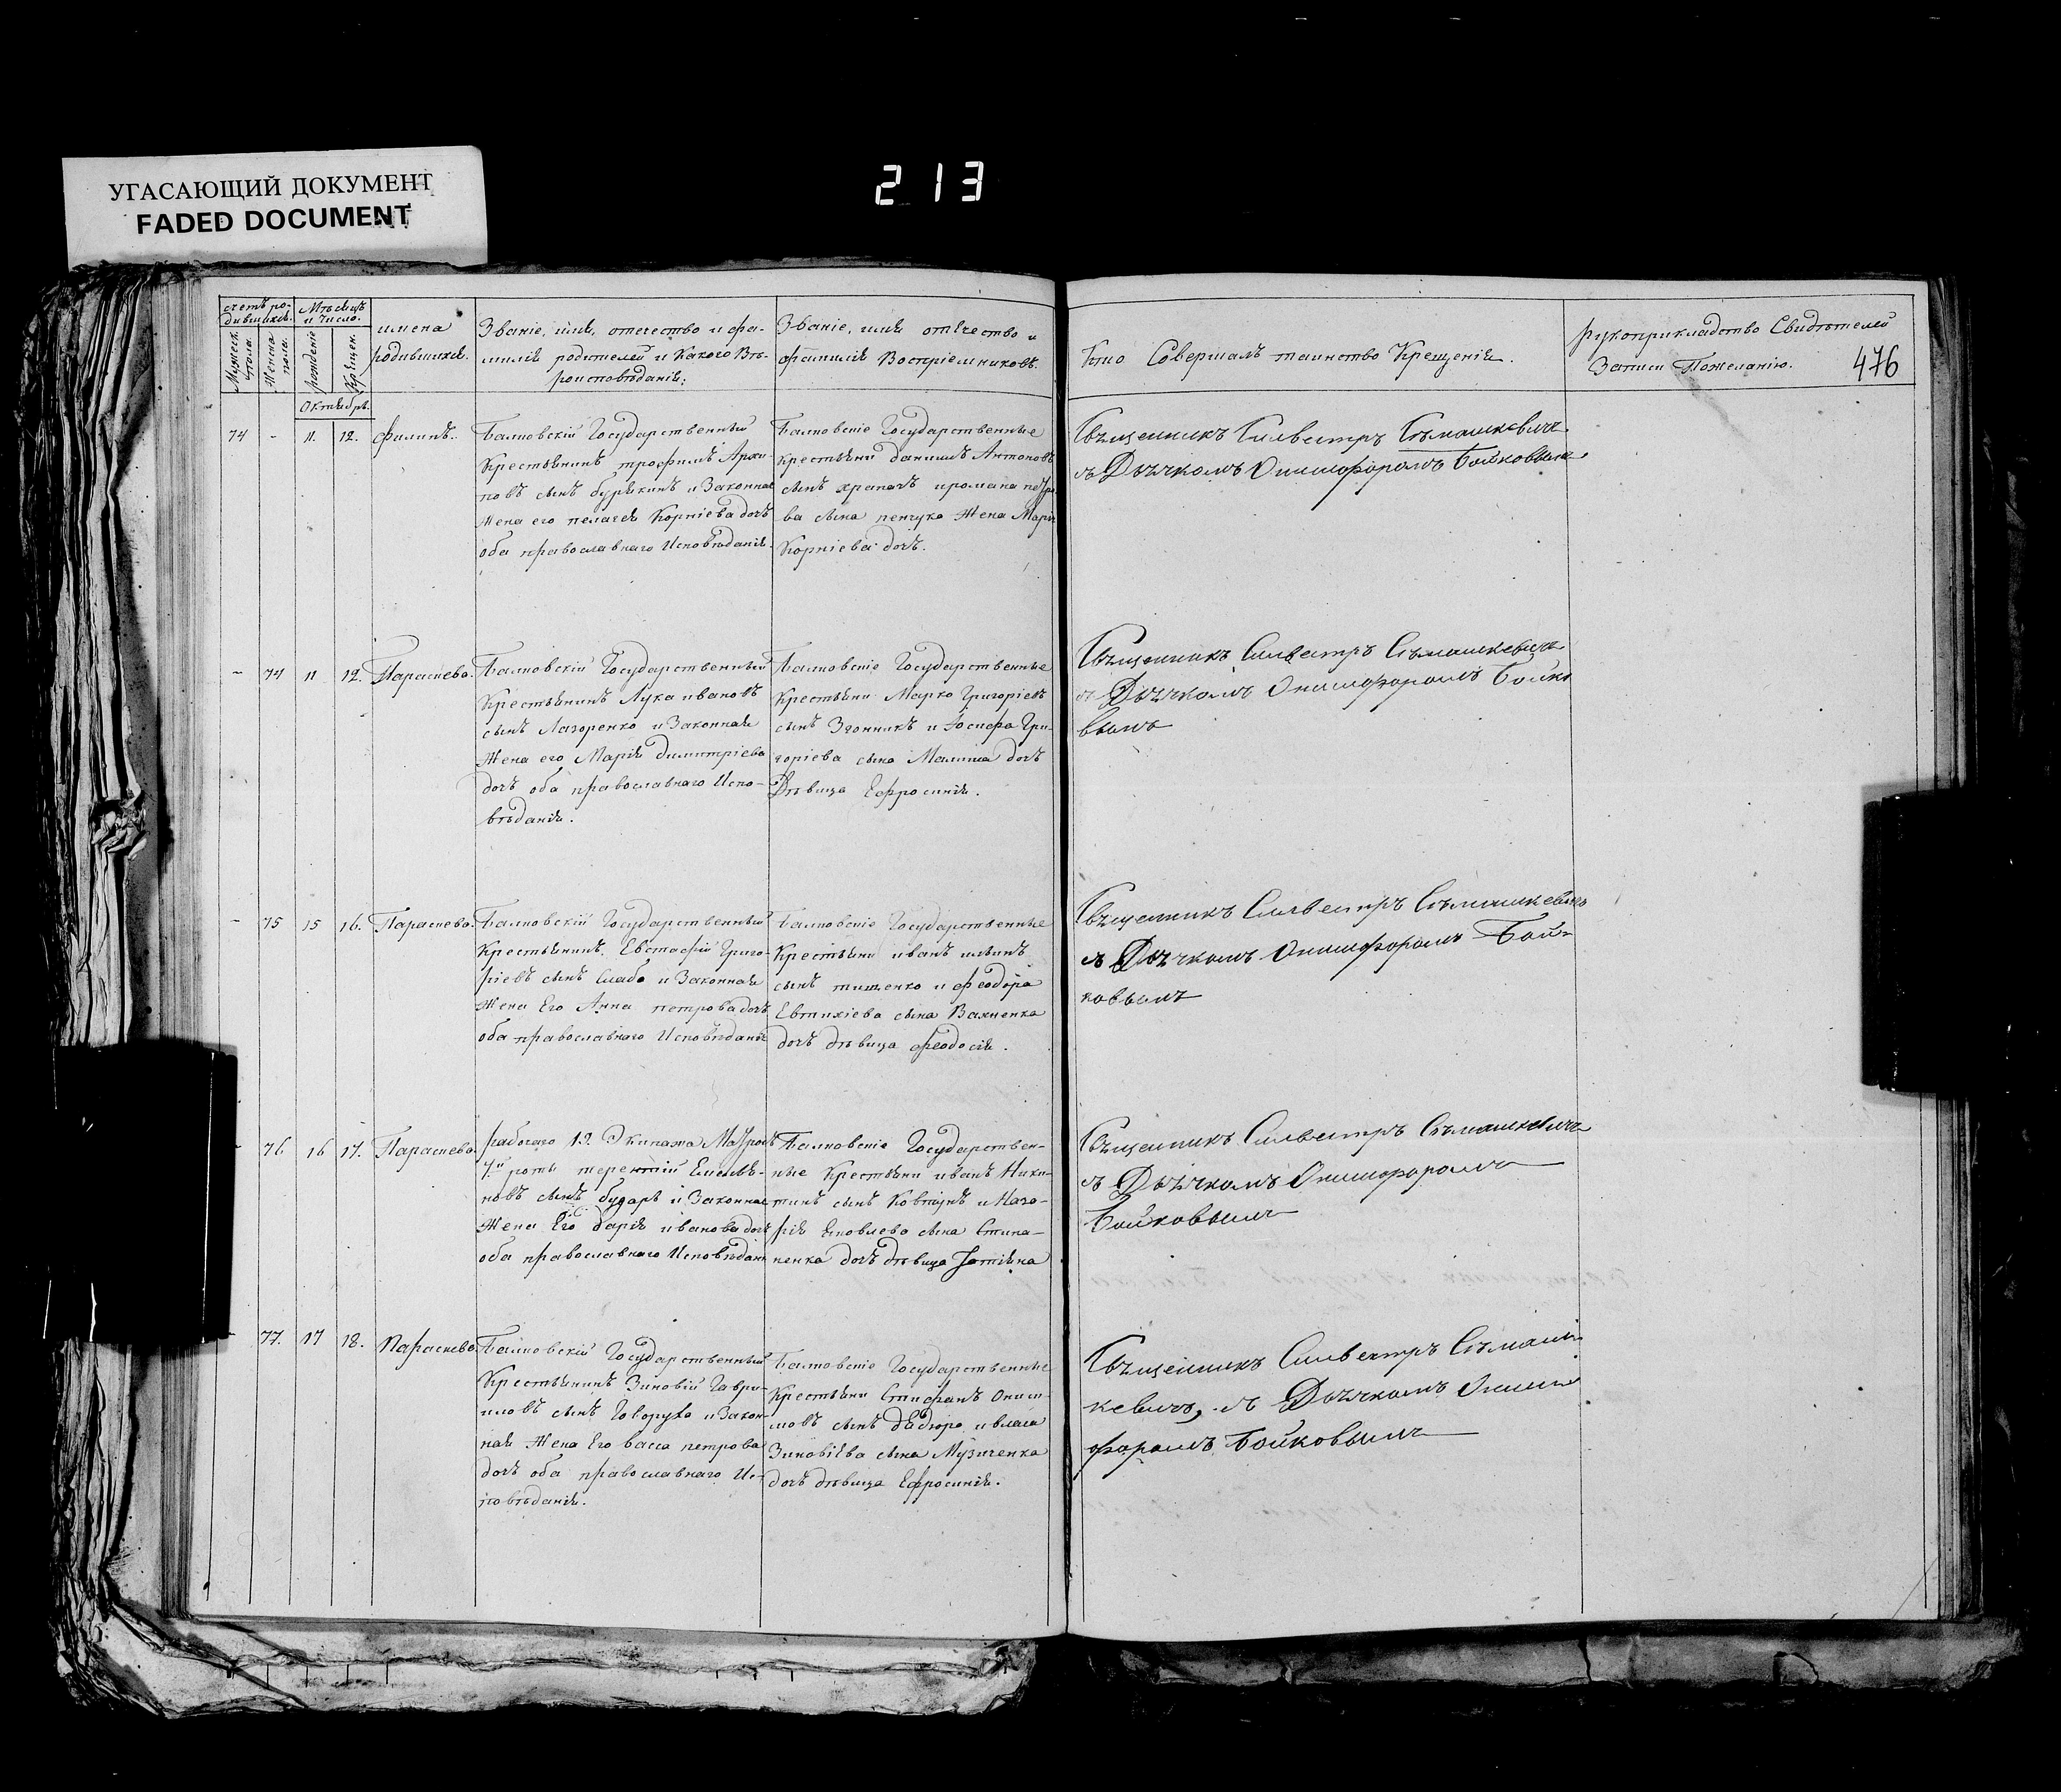 УГАСАЮЩИЙ ДОКУМЕНТ
FADED DOCUMENT
213
счетъ ро-
дившихся.
Мужеск. пола.
Женска пола.
Мѣсяцъ
и число.
рожденіе
Крещен.
имена
родившихся.
Званіе, имя, отечество и фа-
милія родителей и Какого Вѣ-
роисповѣданія:
Званіе, имя отечество и
фамилія Воспріемниковъ.
Кто Совершалъ таинство Крещенія.
рукоприкладство Свидѣтелей
Записи Пожеланію.
476
Октября.
74 - 11. 12. филипъ.
Балковскій Государственный
Крестьянинъ трофимъ Архи-
повъ сынъ бурякинъ и Законная
Жена его пелагея Корніева дочь
оба православнаго Исповѣданія.
Крестьяни данiилъ Антоновъ
сынъ храпачъ и романа петро
ва сына пенчука Жена Марія
Корніева дочь.
Священникъ Силвестръ Сѣмашкевичъ
съ Дьячкомъ Онисифоромъ Бойковымъ
- 74 11 12. Параскева.
Государственный
Крестьянинъ Лука ивановъ
сынъ Лазоренко и Законная
Жена его Марія Димитріева
дочь оба православнаго Испо-
вѣданія.
Государственные
Крестьяни Марко Григоріевъ
сынъ Згонникъ и Іосифа Гри-
горіева сына дочь
Дѣвица Ефросинія.
Священникъ Силвестръ Сѣмашкевичъ
съ Дьячкомъ Онисифоромъ Бойко
вымъ
- 75 15 16. Параскева.
Государственный
Крестьянинъ Евстафій Григо-
ріевъ сынъ Слабо и Законная
Жена Его Анна петрова дочь
оба православнаго Исповѣданія
Государственные
Крестьяни иванъ ильинъ
сынъ тищенко и феодора
Евтихіева сына Вахненка
дочь дѣвица феодосія.
Священникъ Силвестръ Сѣмашкевичъ
съ Дьячкомъ Онисифоромъ Бой-
ковымъ
76 16 17. Параскева
рабочаго 19. Экипажа Матросъ
7.й роты терентій Емелья-
новъ сынъ бударъ и Законная
Жена Его дарія иванова дочь
оба православнаго Исповѣдані
Государствен-
ные Крестьяни иванъ Ники-
тинъ сынъ Ковтунъ и Наза-
рія яковлева сына Степа-
ненка дочь дѣвица
Священникъ Силвестръ Сѣмашкевичъ
съ Дьячкомъ Онисифоромъ
Бойковымъ
- 77. 17 18. Параскева
Государственный
Крестьянинъ Зиновій Гаври-
иловъ сынъ Говоруха и Закон-
ная Жена Его васса петрова
дочь оба православнаго Ис-
повѣданія.
Государственные
Крестьяни Стефанъ Онис-
мовъ сынъ и власа
Зиновіева сына Музиченка
дочь дѣвица Ефросинія.
Священникъ Силвестръ Сѣмаш-
кевичъ, съ Дьячкомъ Ониси
форомъ Бойковымъ